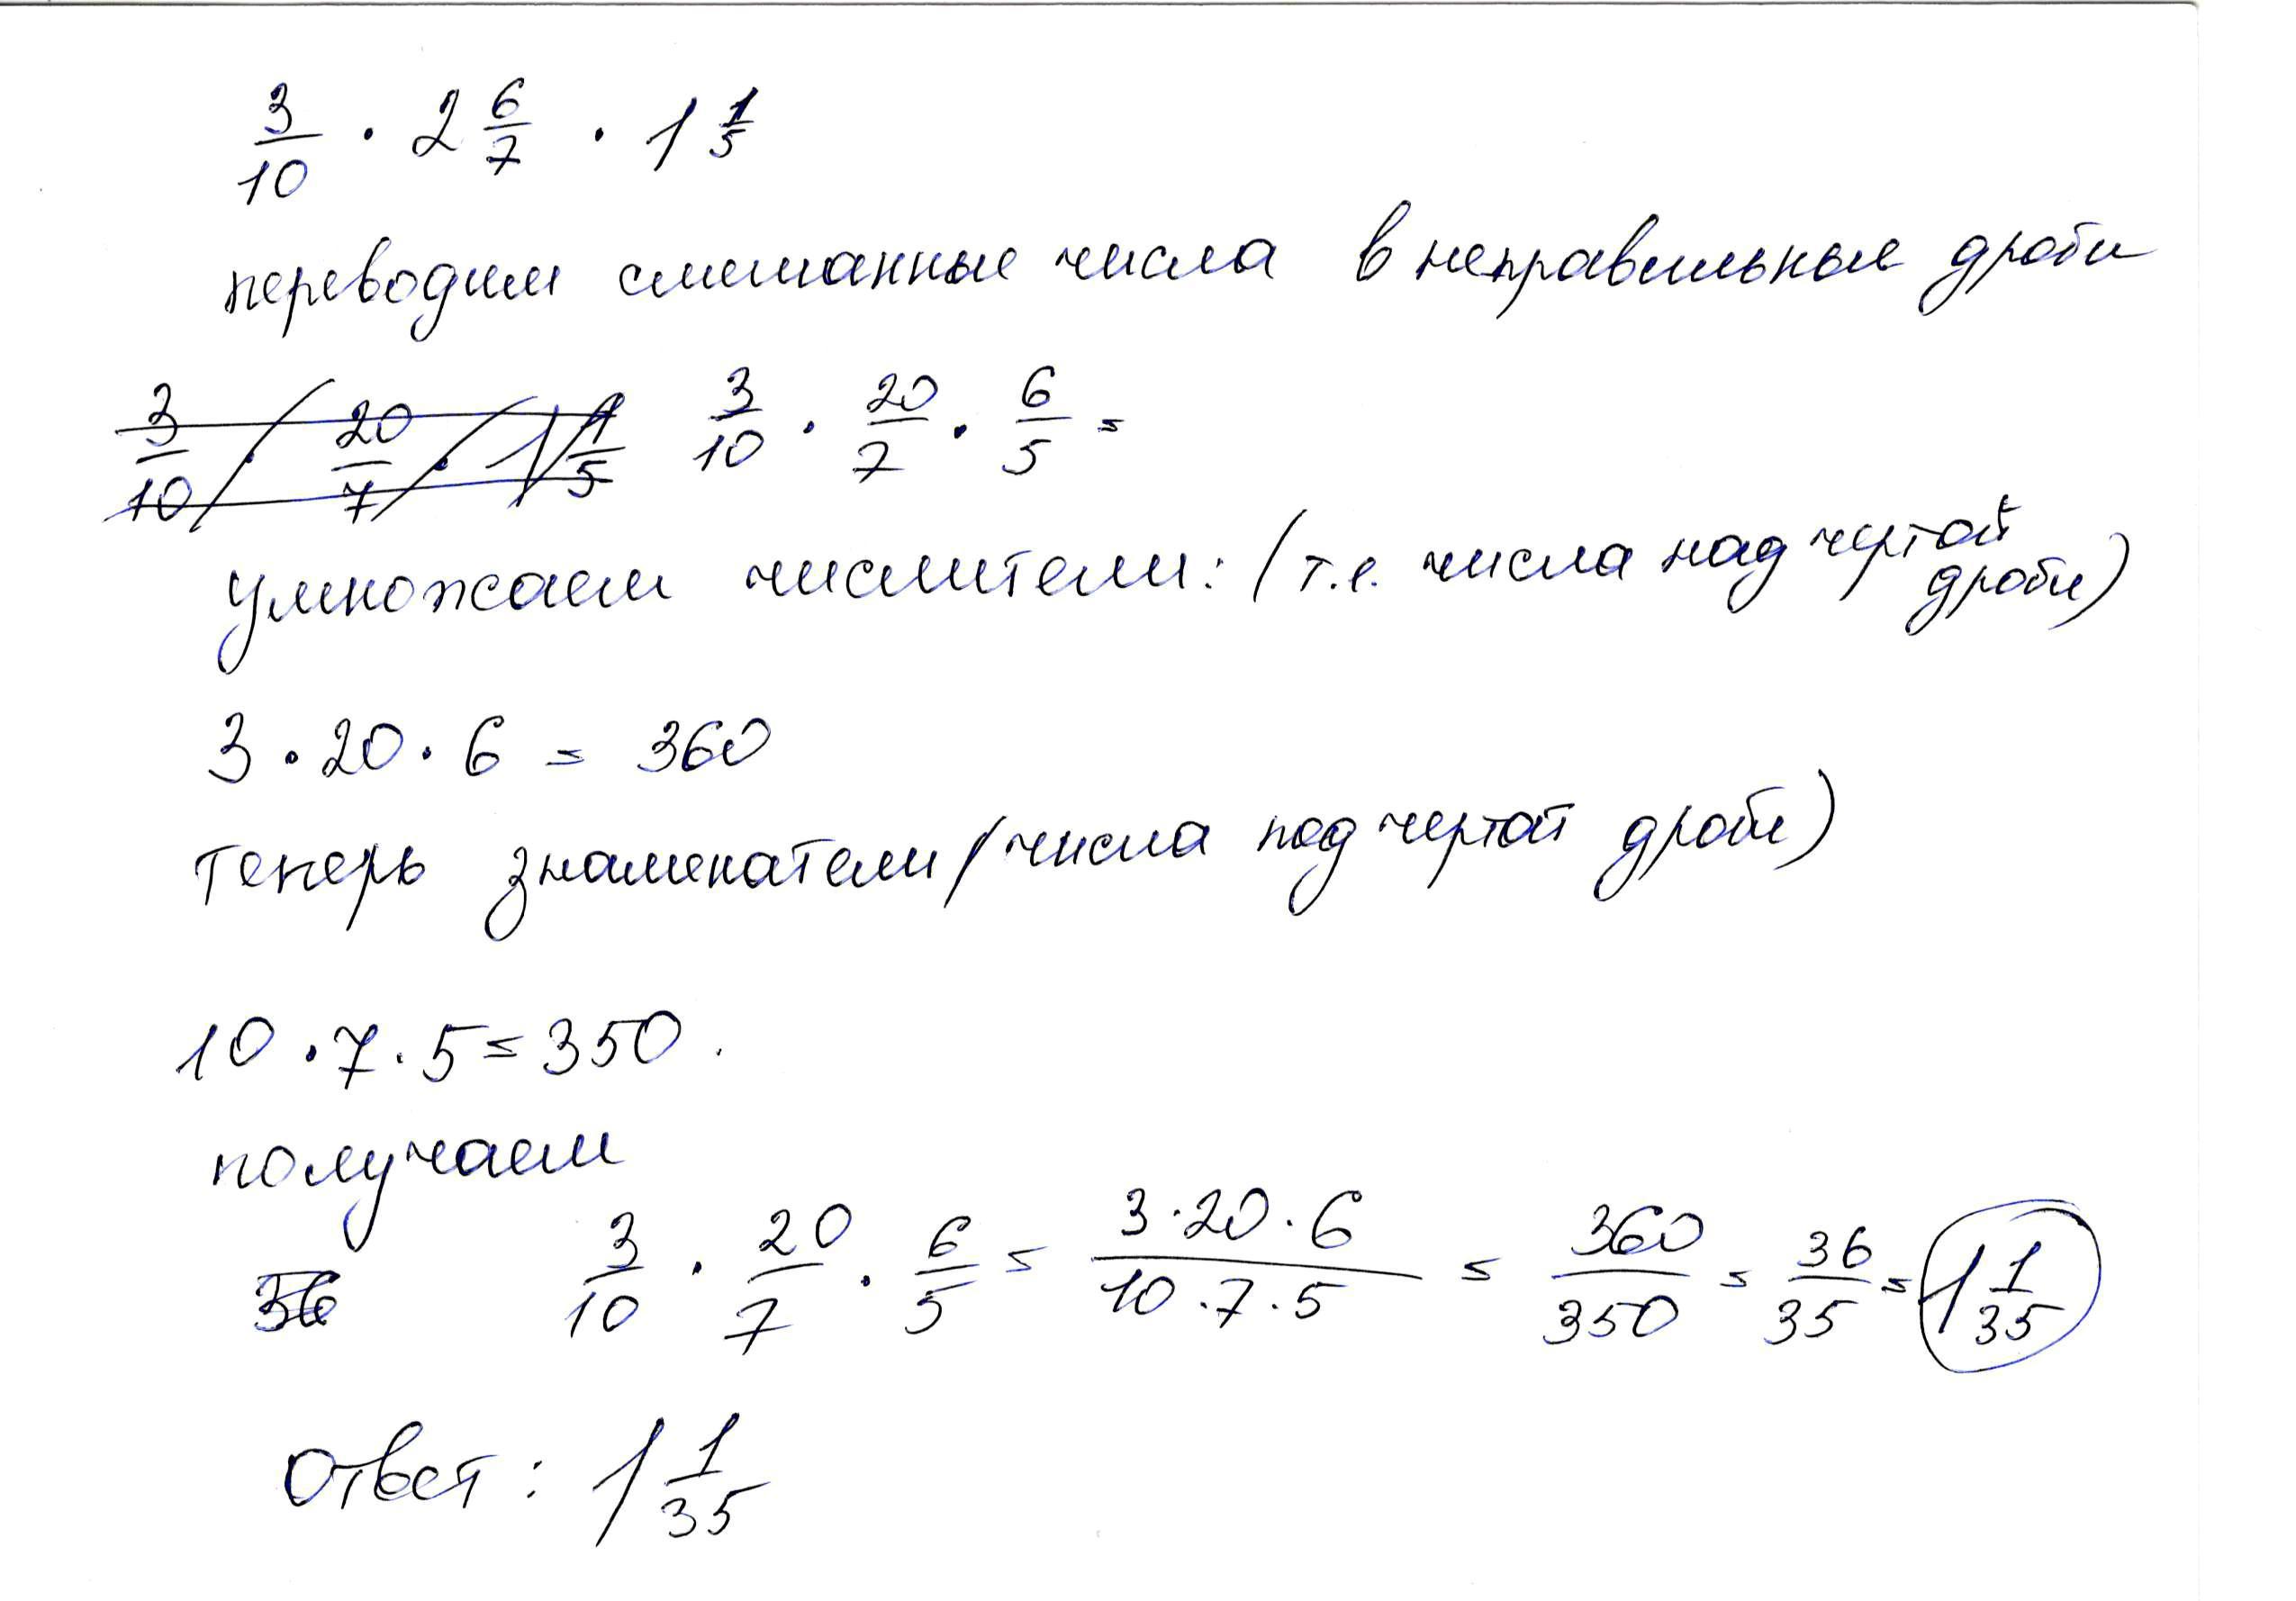 3/10 · 2 6/7 · 1 1/5
переводим смешанные числа в неправильные дроби
3/10 · 20/7 · 1 1/5 3/10 · 20/7 · 6/5 =
умножаем числители: (т.е. числа над чертой
дроби)
3 · 20 · 6 = 360
теперь знаменатели (числа под чертой дроби)
10 · 7 · 5 = 350.
получаем
36 3/10 · 20/7 · 6/5 = 3·20·6/10·7·5 = 360/350 = 36/35 = 1 1/35
Ответ: 1 1/35